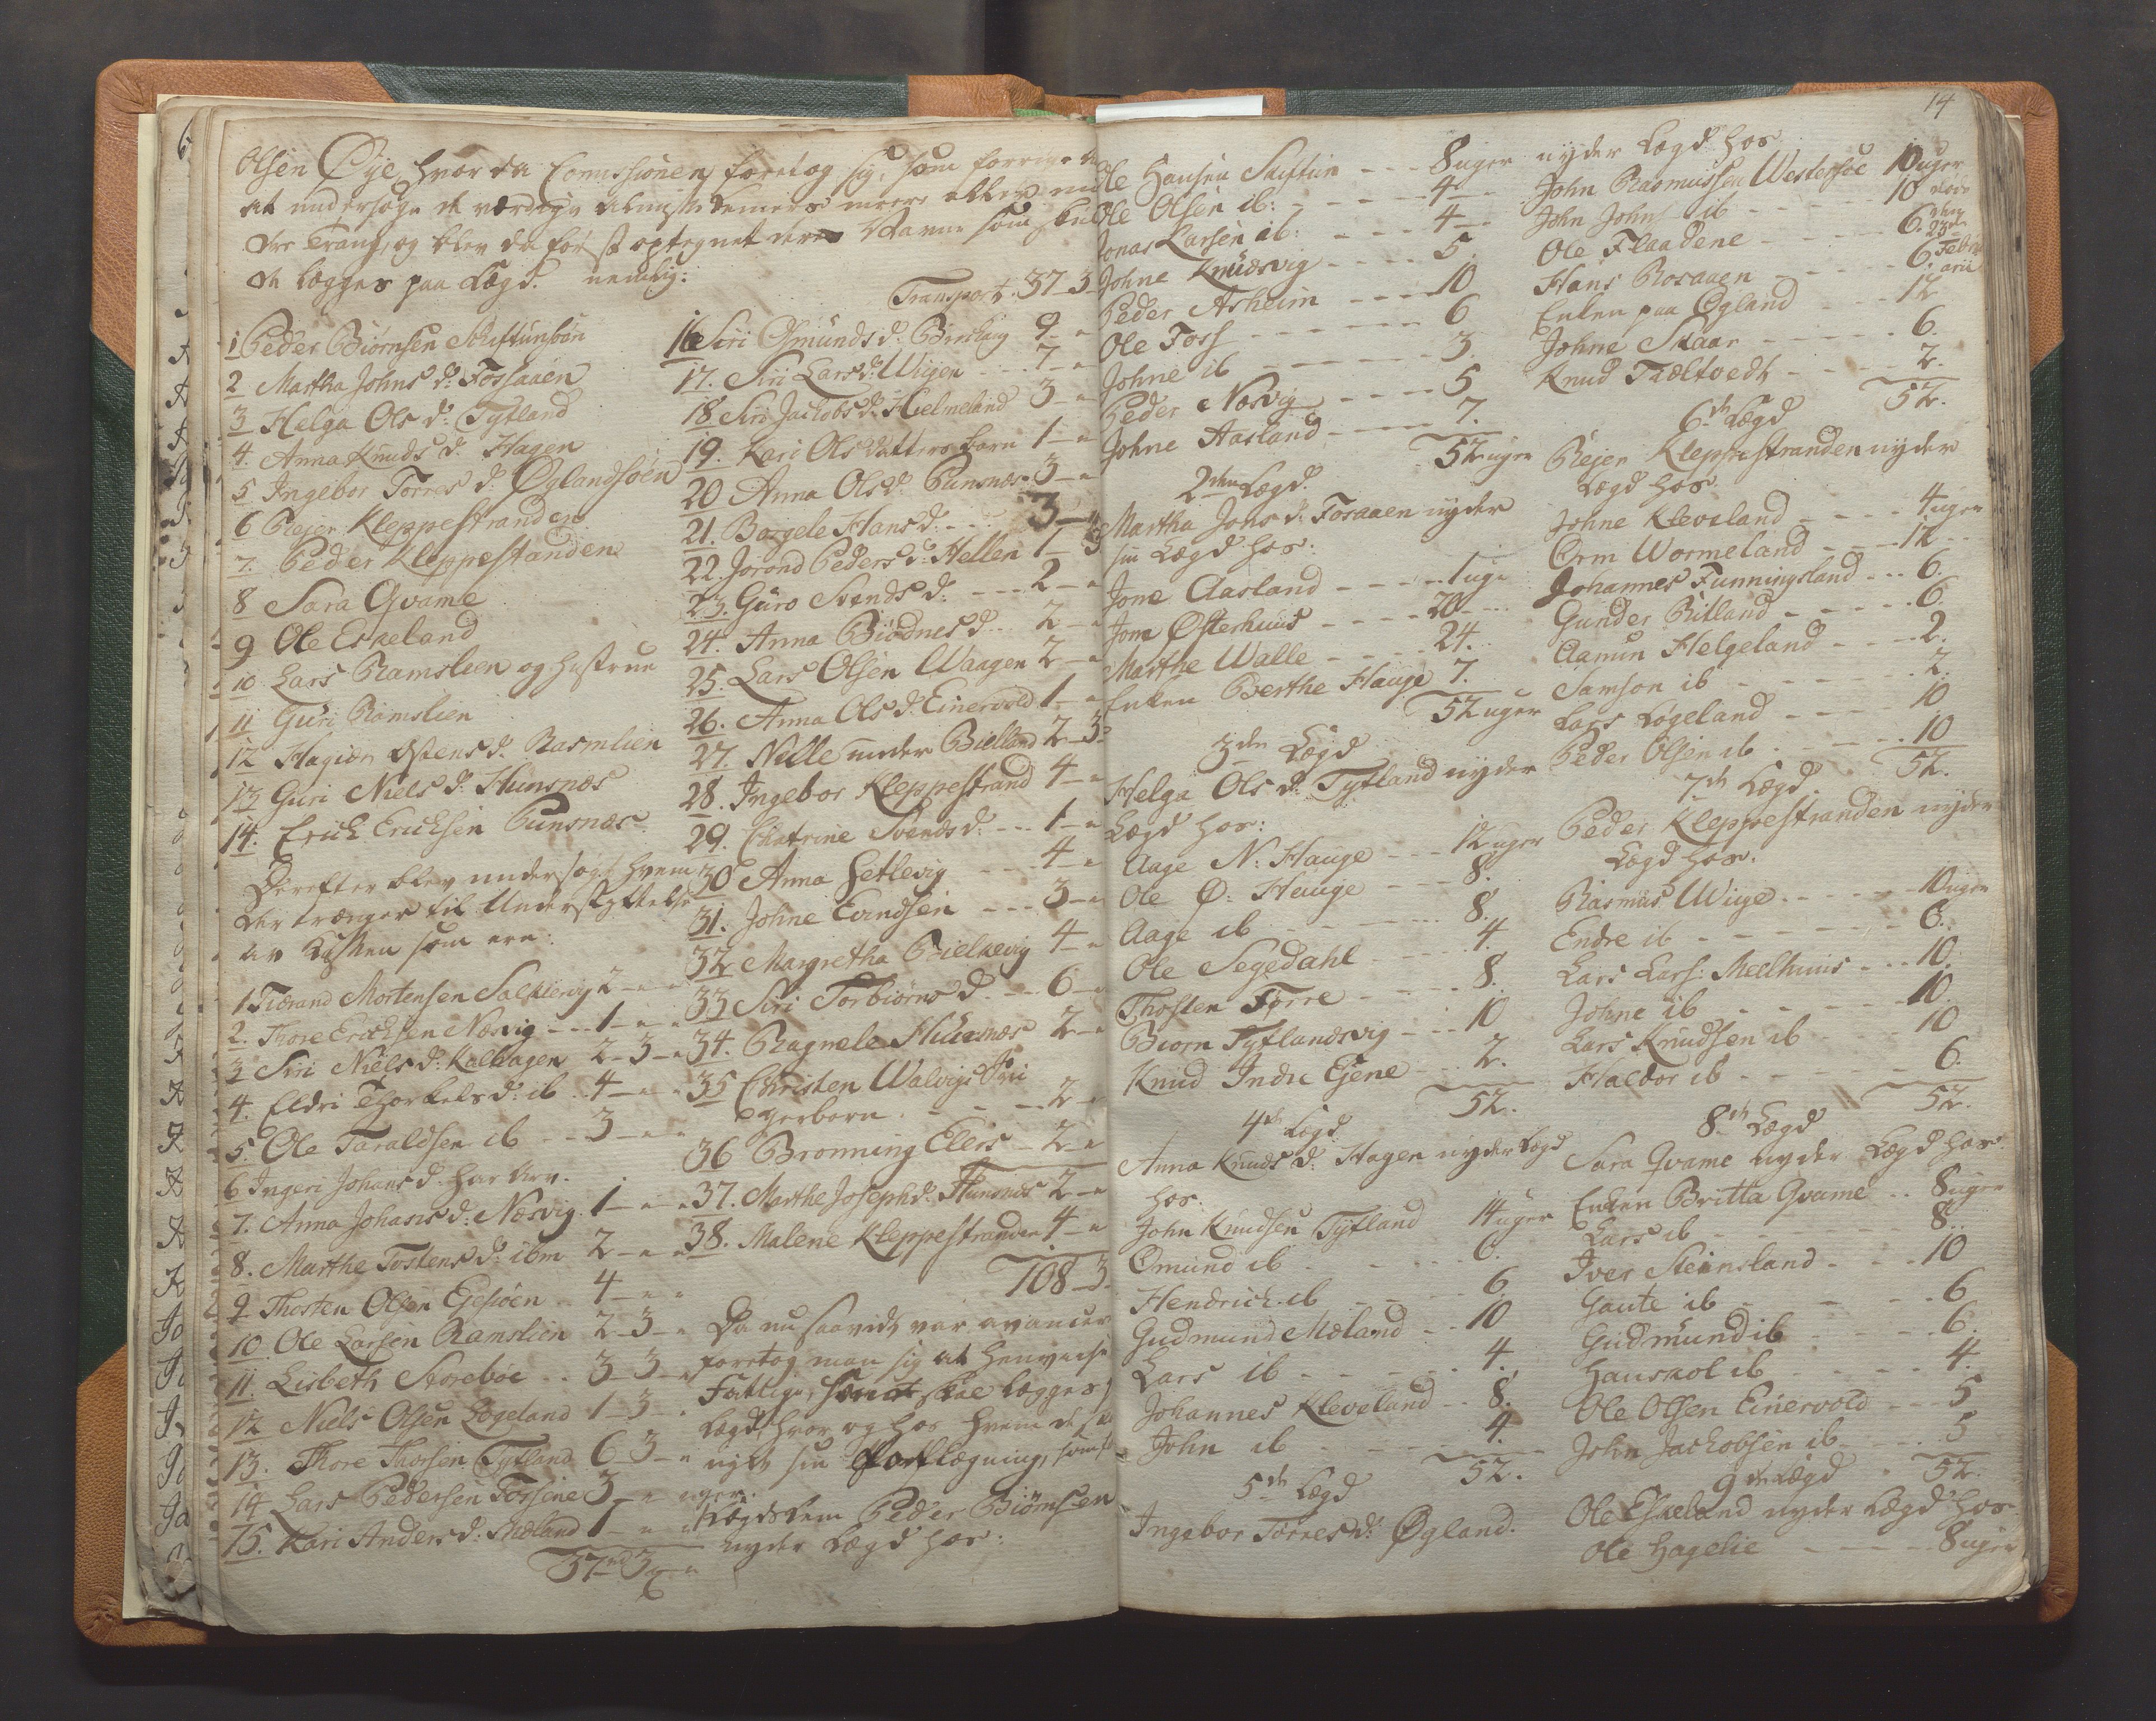 Olsen Øye, hvor da Comissionen foretog sig, som forrige
at undersøge de værdige Almisselemers meere eller
dre Trang, og blev da først optegnet deres Navne som
de legges paa Lægd. nemlig:
1 Peder Biørnsen Schiftunsøen
2 Martha Johns d: Fossaaen
3 Helga Ols d: Tytland
4. Anna Knuds d: Hagen
5 Ingebor Torres d: Øglandsøen
6 Rejer Kleppestranden
7. Peder Kleppestanden
8 Sara Qvame
9 Ole Eskeland
10 Lars Ramslien og hustrue
11 Guri Ramslien
12 Østens d: Rasmlien
13 Guri Niels d: Hunsnæs
14. Erich Erichsen Punsnæs
Derefter blev undersøgt hvem
der trænger til Understyttelse
av Cassen som ere:
1 Tiærand Mortensen 2 - "
2. Thore Erichsen Næsvig --- 1 - " - "
3 Siri Niels d: Kallhagen 2 - 3 - "
4. Eldri Thorkels d: ib .. 4 - " - "
5. Ole Taraldsen ib -- 3 - " - "
6 Ingeri Johans d: har Arv.
7. Anna Johans d: Næsvig . 1 - " - "
8. Marthe Tostens d: ibm 2 - " - "
9 Thosten Olsen Ejesiøen .. 4 - " - "
10. Ole Larsen Ramslien 2 - 3 - "
11. Lisbeth Storebøe .. 3 - 3 - "
12 Niels Olsen Løgeland 1 - 3 - "
13. Thore Thorsen Tytland 6 - 3 - "
14 Lars Pedersen Fossene 3 - " - "
15. Kari Anders d: Mæland 1 - " - "
37 rd 3 -
Transport . 37 - 3
16 Siri Osmunds d: 9 - "
17. Siri Lars d: Wiigen --- 7 - "
18 Siri Jachobs d: Hielmeland 3 - "
19. Kari Ols datters barn 1 - "
20 Anna Ols d: Punsnæs 3 - "
21. Borgele Hans d: --- 3 - "
22. Jorond Peders d: Hellen 1 - 3
23. Guro Svends d: --- 2 - "
24. Anna Biødnes d: .. 2 - "
25. Lars Olsen Waagen 2 - "
26. Anna Ols d: Einervold 1 - "
27. Nelle under Bielland 2 - 3
28. Ingebor Kleppestrand 4 - "
29. Chatrine Svends d: --- 1 - "
30 Anna Setlevig --- 4 - "
31. Johne Evindsen --- 3 - "
32 Margretha Bielkevig 4 - "
33 Siri Torbiørns d: --- 6 - "
34. Ragnele Hunsnæs 2 - "
35 Christen Walvigs
gerbørn . - - - 2 - "
36 Bronning Elers - 2 - "
37. Marthe Joseph d: Hunsnæs 2 - "
38. Malene Kleppestranden 4 - "
108 - 3
Da nu saavidt var avancert
foretog man sig at henveise
Fattige, som skal legges
Lægd, hvor og hos hvem de skal
nyde sin Forflægning, som f
ger.
Lægdslem Peder Biørnsen
nyder Lægd hos:
14
Ole Hansen Skiftun --- 8 uger
Ole Olsen ib: ----- 4 --
Jonas Larsen ib: ---- 4 --
Johne Knudsvig ---- 5
Peder Asheim ---- 10
Ole Foss ------ 6
Johne ib ------ 3.
Peder Næsvig ---- 5
Johne Aasland ---- 7.
52 uger
2den Lægd.
Martha Johns d: Fosaaen nyder
sin Lægd hos:
Jone Aasland ----- 1 uge
Jone Østerhuus ---- 20 ---
Marthe Walle ---- 24.
Enken Berthe Hauge 7.
52 uger
3den Lægd
Helga Ols d: Tytland nyder
Lægd hos:
Aage N: Hauge --- 12 uger
Ole Ø: Hauge --- 8.
Aage ib ----- 8.
Ole Segedahl ---- 4.
Thosten Fyrre ---- 8.
Biorn Tytlandsvig --- 10
Knud Indre Ejene --- 2.
52.
4de Lægd.
Anna Knuds d: Hagen nyder Lægd
hos:
John Knudsen Tytland 14 uger
Omund ib . - - - 6.
Hendrich ib ---- 6
Gudmund Mæland -- 10
Lars ib ----- 4.
Johannes Kleveland .. 8.
John ib ---- 4.
52.
5de Lægd
Ingebor Torres d: Øgland.
nyder Lægd hos
John Rasmussen Westersøe 10 uger
John Johns: ib ---- 10
Ole Flaadene ---- 6.
Hans Rosaaen ---- 6.
den 23de Febr: arii
Enken paa Øgland --- 12
Johne Skaar ---- 6.
Knud Tveltvedt ---- 2.
52.
6de Lægd
Rejer Kleppestranden nyder
Lægd hos.
Johne Kleveland ---- 4 uger
Orm Wormeland --- 12 --
Johannes Funningsland --- 6.
Gunder Ritland ---- 6.
Aamun Helgeland --- 2.
Samson ib ---- 2.
Lars Løgeland --- 10
Peder Olsen ib ---- 10
52.
7de Lægd
Peder Kleppestranden nyder
Lægd hos:
Rasmus Wiige ---- 10 uger
Endre ib ------ 6.
Lars Lars: Meelhuus --- 10.
Johne ib ----- 10.
Lars Knudsen ib --- 10
Haldor ib ----- 6.
52.
8de Lægd
Sara Qvame nyder Lægd hos
Enken Britta Qvame .. 8 uger
Lars ib ----- 8..
Iver Steinsland --- 10
Gaute ib ----- 6
Gudmund ib ---- 6.
Hauskol ib ---- 4.
Ole Olsen Einervold --- 5
John Jachobsen ib --- 5
52
9de Lægd
Ole Eskeland nyder Lægd hos
Ole Hagelie ---- 8 uger